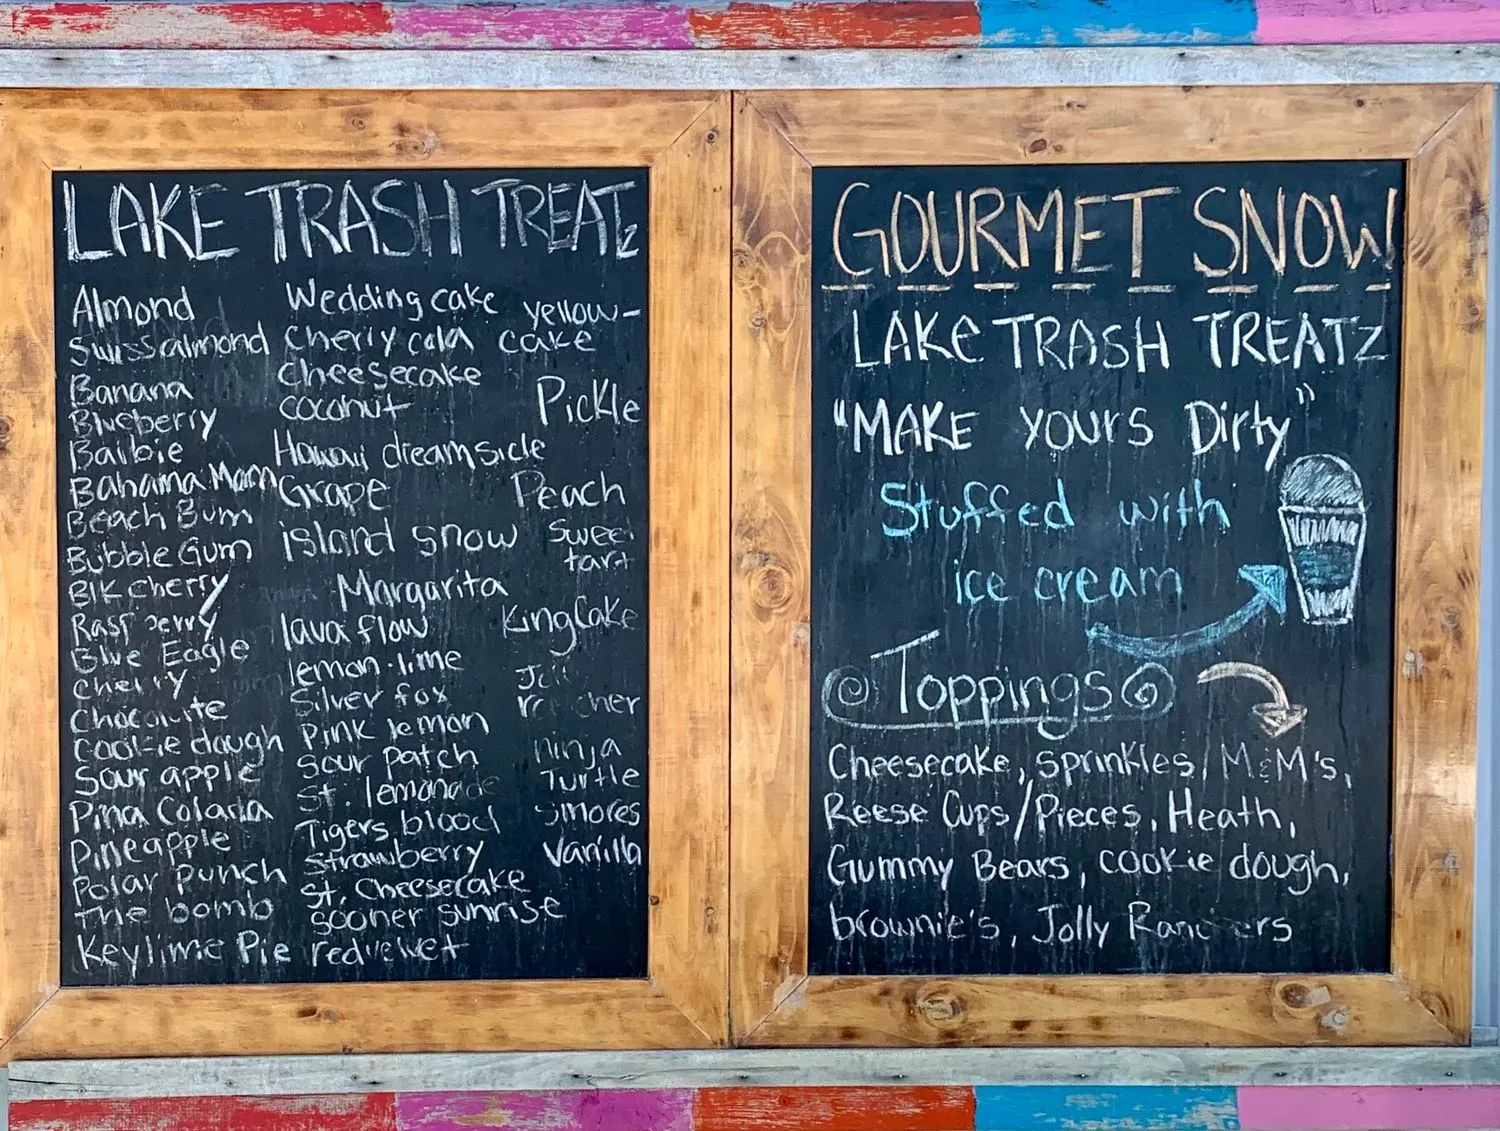 LAKE TRASH TREATz
Almond
Swiss almond
Banana
Blueberry
Barbie
Bahama Mam
Beach Bum
Bubble Gum
Blk Cherry
Raspberry
Blue Eagle
Cherry
Chocolate
Cookie dough
Sour apple
Pina Colada
Pineapple
Polar punch
The bomb
Keylime Pie
Wedding cake
Cherry cola
Cheesecake
coconut
Hawaii dreamsicle
Grape
island snow
Margarita
lava flow
lemon-lime
Silver fox
Pink lemon
Sour Patch
St. lemonade
Tigers blood
Strawberry
St. Cheesecake
sooner sunrise
redvelvet
yellow-
cake
Pickle
Peach
Sweet
tart
KingCake
Jolly
rancher
ninja
Turtle
Smores
Vanilla
GOURMET SNOW
LAKE TRASH TREATZ
"MAKE YOURS Dirty"
Stuffed with
ice cream
Toppings
Cheesecake, Sprinkles, M&M's,
Reese Cups/Pieces, Heath,
Gummy Bears, cookie dough,
brownie's, Jolly Ranchers